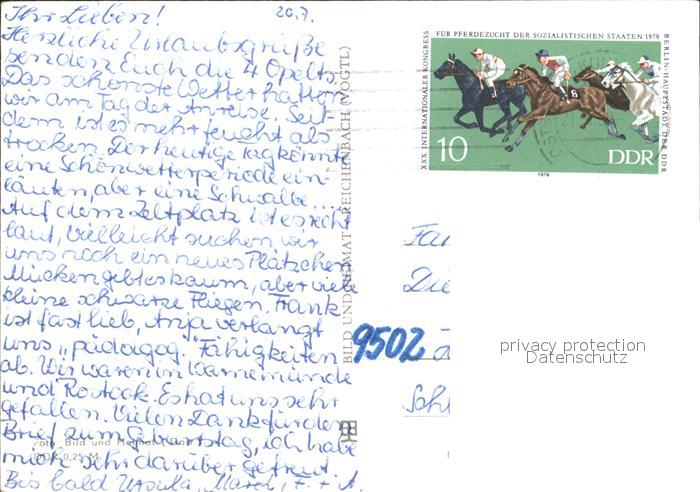 Ihr Lieben! 20.7.
Herzliche Urlaubsgrüße
senden Euch die 4 Opelts.
Das schönste Wetter hatten
wir am Tag der Anreise. Seit-
dem ist es mehr feucht als
trocken. Der heutige Tag könnte
eine Schönwetterperiode ein-
läuten, aber eine Schwalbe....
Auf dem Zeltplatz ist es recht
laut, vielleicht suchen wir
uns noch ein neues Plätzchen.
Mücken gebt es kaum, aber viele
kleine schwarze Fliegen. Frank
ist fast lieb, Anja verlangt
uns „pädagog." Fähigkeiten
ab. Wir waren in Warnemünde
und Rostock. Es hat uns sehr
gefallen. Vielen Dank für den
Brief zum Geburtstag, ich habe
mich sehr darüber gefreut.
Bis bald Ursula, F. + A.
Foto: Bild und Heimat
DDR 0,25 M
BILD UND HEIMAT REICHENBACH (VOGTL)
XXX. INTERNATIONALER KONGRESS
FÜR PFERDEZUCHT DER SOZIALISTISCHEN STAATEN 1979
BERLIN-HAUPTSTADT DER DDR
10
DDR
1979
Die
9502
privacy protection
Datenschutz